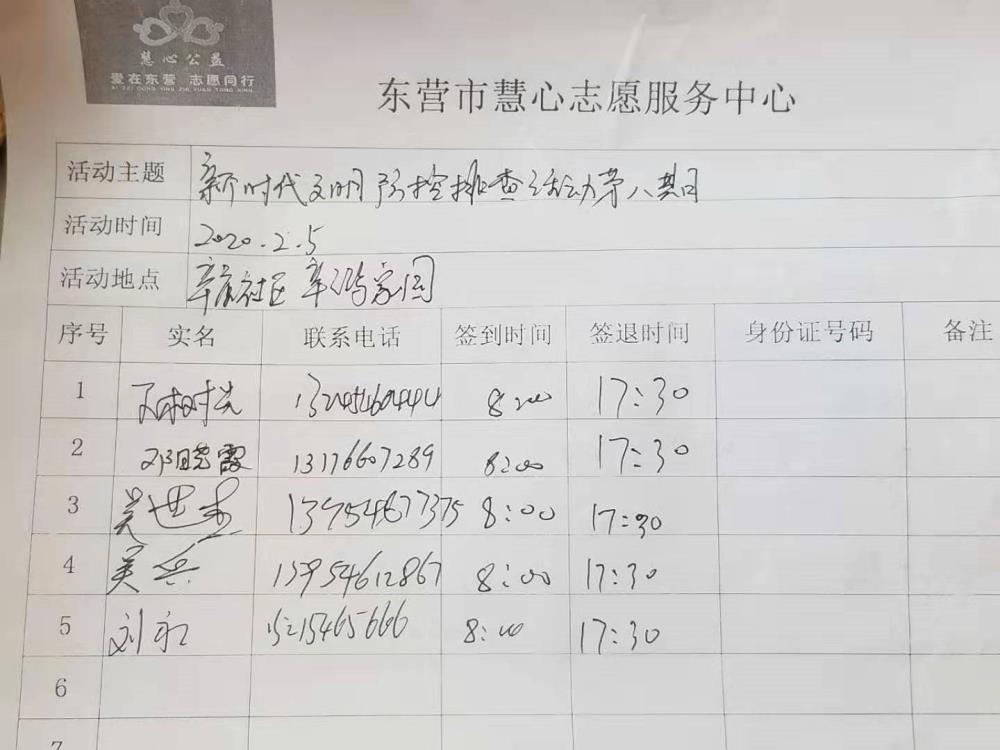 慧心公益
爱在东营 志愿同行
AI ZAI DONG YING ZHI YUAN TONG XING
东营市慧心志愿服务中心
活动主题 新时代文明防控排查活动第八期
活动时间 2020.2.5
活动地点 社区 家园
序号 实名 联系电话 签到时间 签退时间 身份证号码 备注
1 8:00 17:30
2 邓晓霞 13176607289 8:00 17:30
3 吴世杰 13954677375 8:00 17:30
4 吴兵 13954612867 8:00 17:30
5 刘永 15215465666 8:00 17:30
6
7